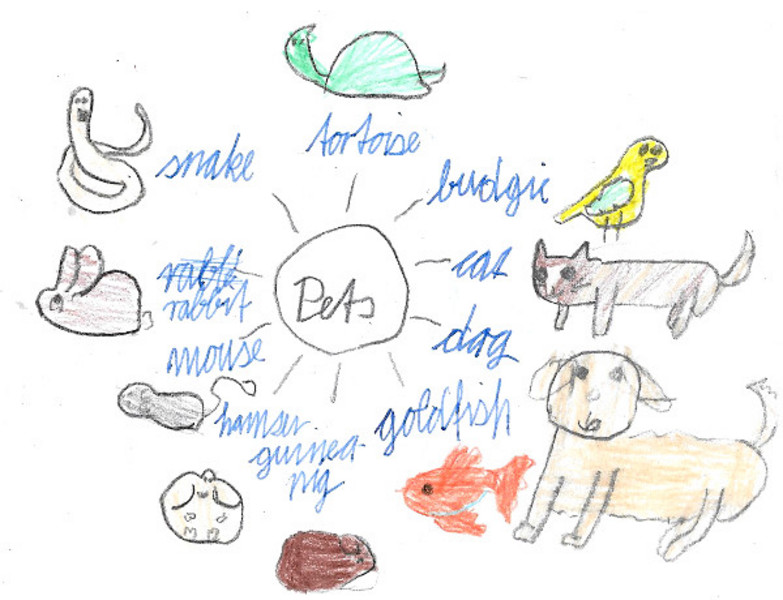 tortoise
snake
budgie
cat
rabbit
Pets
mouse
dog
hamser
goldfish
guinea-
pig